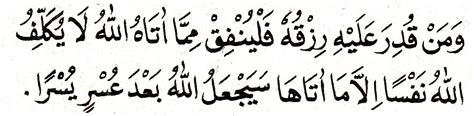 وَمَنْ قُدِرَ عَلَيْهِ رِزْقُهُ فَلْيُنْفِقْ مِمَّا اٰتَاهُ اللهُ لَا يُكَلِّفُ
اللهُ نَفْسًا اِلَّا مَا اٰتَاهَا سَيَجْعَلُ اللهُ بَعْدَ عُسْرٍ يُسْرًا .